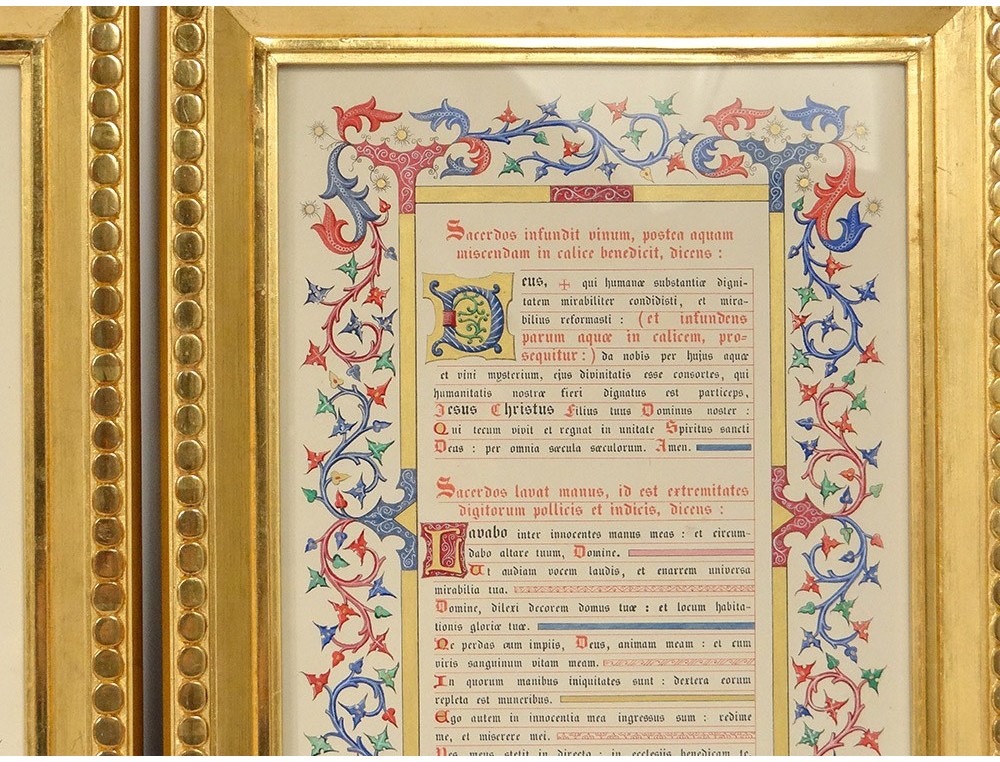 Sacerdos infundit vinum, postea aquam
miscendam in calice benedicit, dicens :
Deus, ✠ qui humanæ substantiæ digni-
tatem mirabiliter condidisti, et mira-
bilius reformasti : (et infundens
parum aquæ in calicem, pro-
sequitur :) da nobis per hujus aquæ
et vini mysterium, ejus divinitatis esse consortes, qui
humanitatis nostræ fieri dignatus est particeps,
Jesus Christus Filius tuus Dominus noster :
Qui tecum vivit et regnat in unitate Spiritus sancti
Deus : per omnia sæcula sæculorum. Amen.
Sacerdos lavat manus, id est extremitates
digitorum pollicis et indicis, dicens :
Lavabo inter innocentes manus meas : et circum-
dabo altare tuum, Domine.
Ut audiam vocem laudis, et enarrem universa
mirabilia tua.
Domine, dilexi decorem domus tuæ : et locum habita-
tionis gloriæ tuæ.
Ne perdas cum impiis, Deus, animam meam : et cum
viris sanguinum vitam meam.
In quorum manibus iniquitates sunt : dextera eorum
repleta est muneribus.
Ego autem in innocentia mea ingressus sum : redime
me, et miserere mei.
Pes meus stetit in directo : in ecclesiis benedicam te